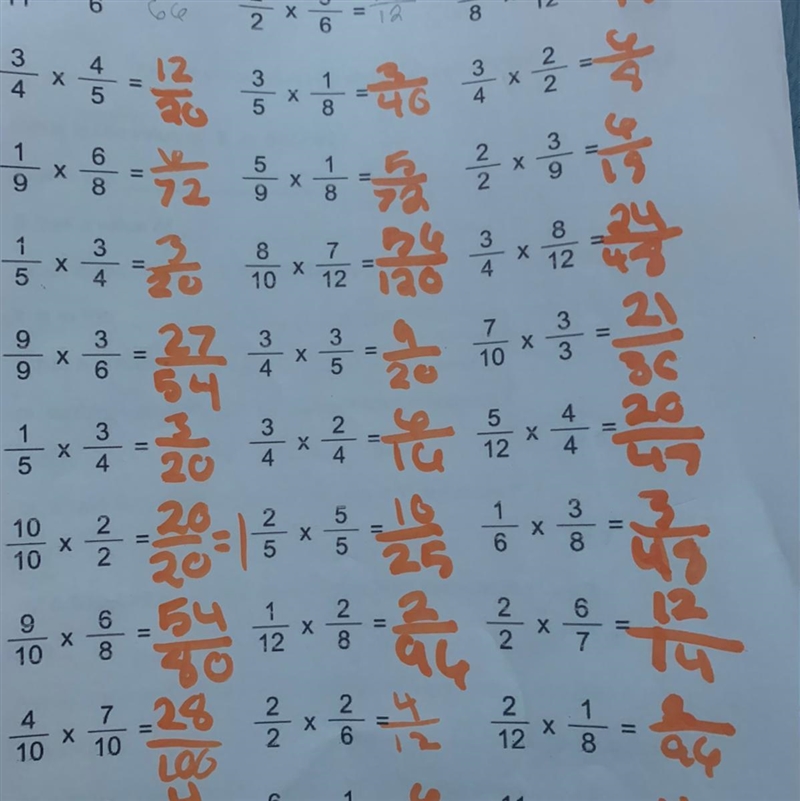 3/4 x 4/5 = 12/20   3/5 x 1/8 = 3/40   3/4 x 2/2 = 6/8
1/9 x 6/8 = 6/72   5/9 x 1/8 = 5/72   2/2 x 3/9 = 6/18
1/5 x 3/4 = 3/20   8/10 x 7/12 = 56/120   3/4 x 8/12 = 24/48
9/9 x 3/6 = 27/54   3/4 x 3/5 = 9/20   7/10 x 3/3 = 21/30
1/5 x 3/4 = 3/20   3/4 x 2/4 = 6/16   5/12 x 4/4 = 20/48
10/10 x 2/2 = 20/20 = 1   2/5 x 5/5 = 10/25   1/6 x 3/8 = 3/48
9/10 x 6/8 = 54/80   1/12 x 2/8 = 2/96   2/2 x 6/7 = 12/14
4/10 x 7/10 = 28/100   2/2 x 2/6 = 4/12   2/12 x 1/8 = 2/96